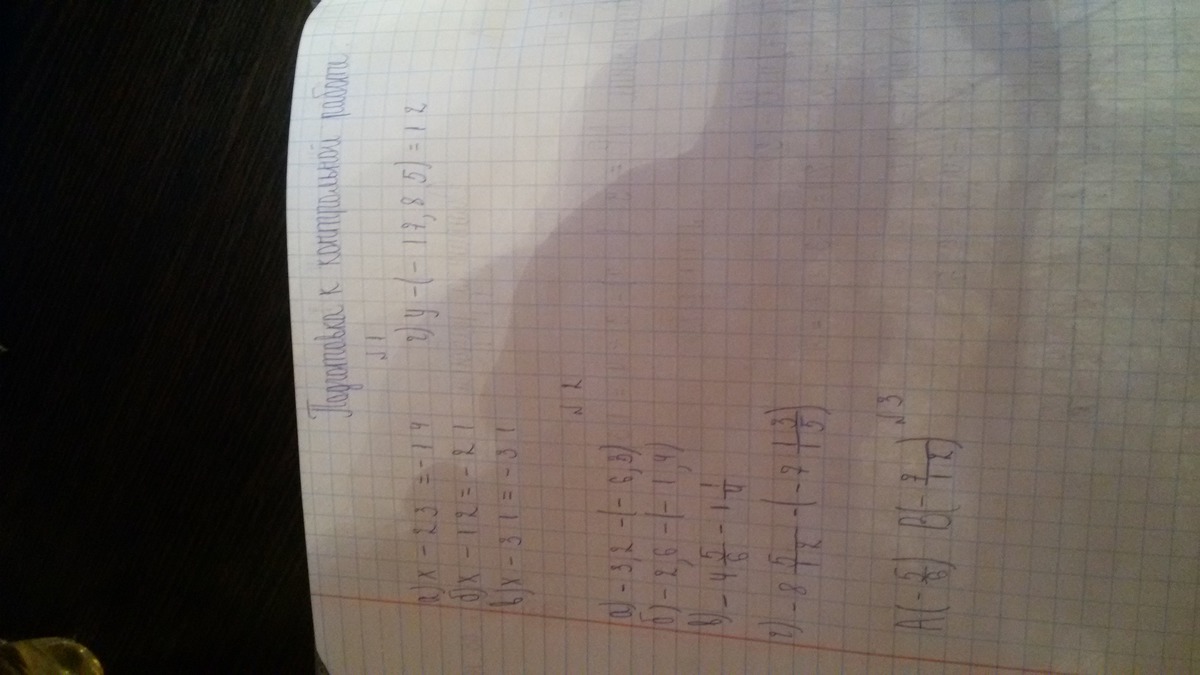 Подготовка к контрольной работе
№1
а) x - 23 = - 14 г) y - (- 17,85) = 12
б) x - 12 = - 21
в) x - 31 = - 31
№2
а) - 3,2 - (- 6,3)
б) - 2,6 - (- 1,4)
в) - 4 5/6 - 1 1/4
г) - 8 5/12 - (- 7 13/15)
№3
A(- 5/6) B(- 7/12)